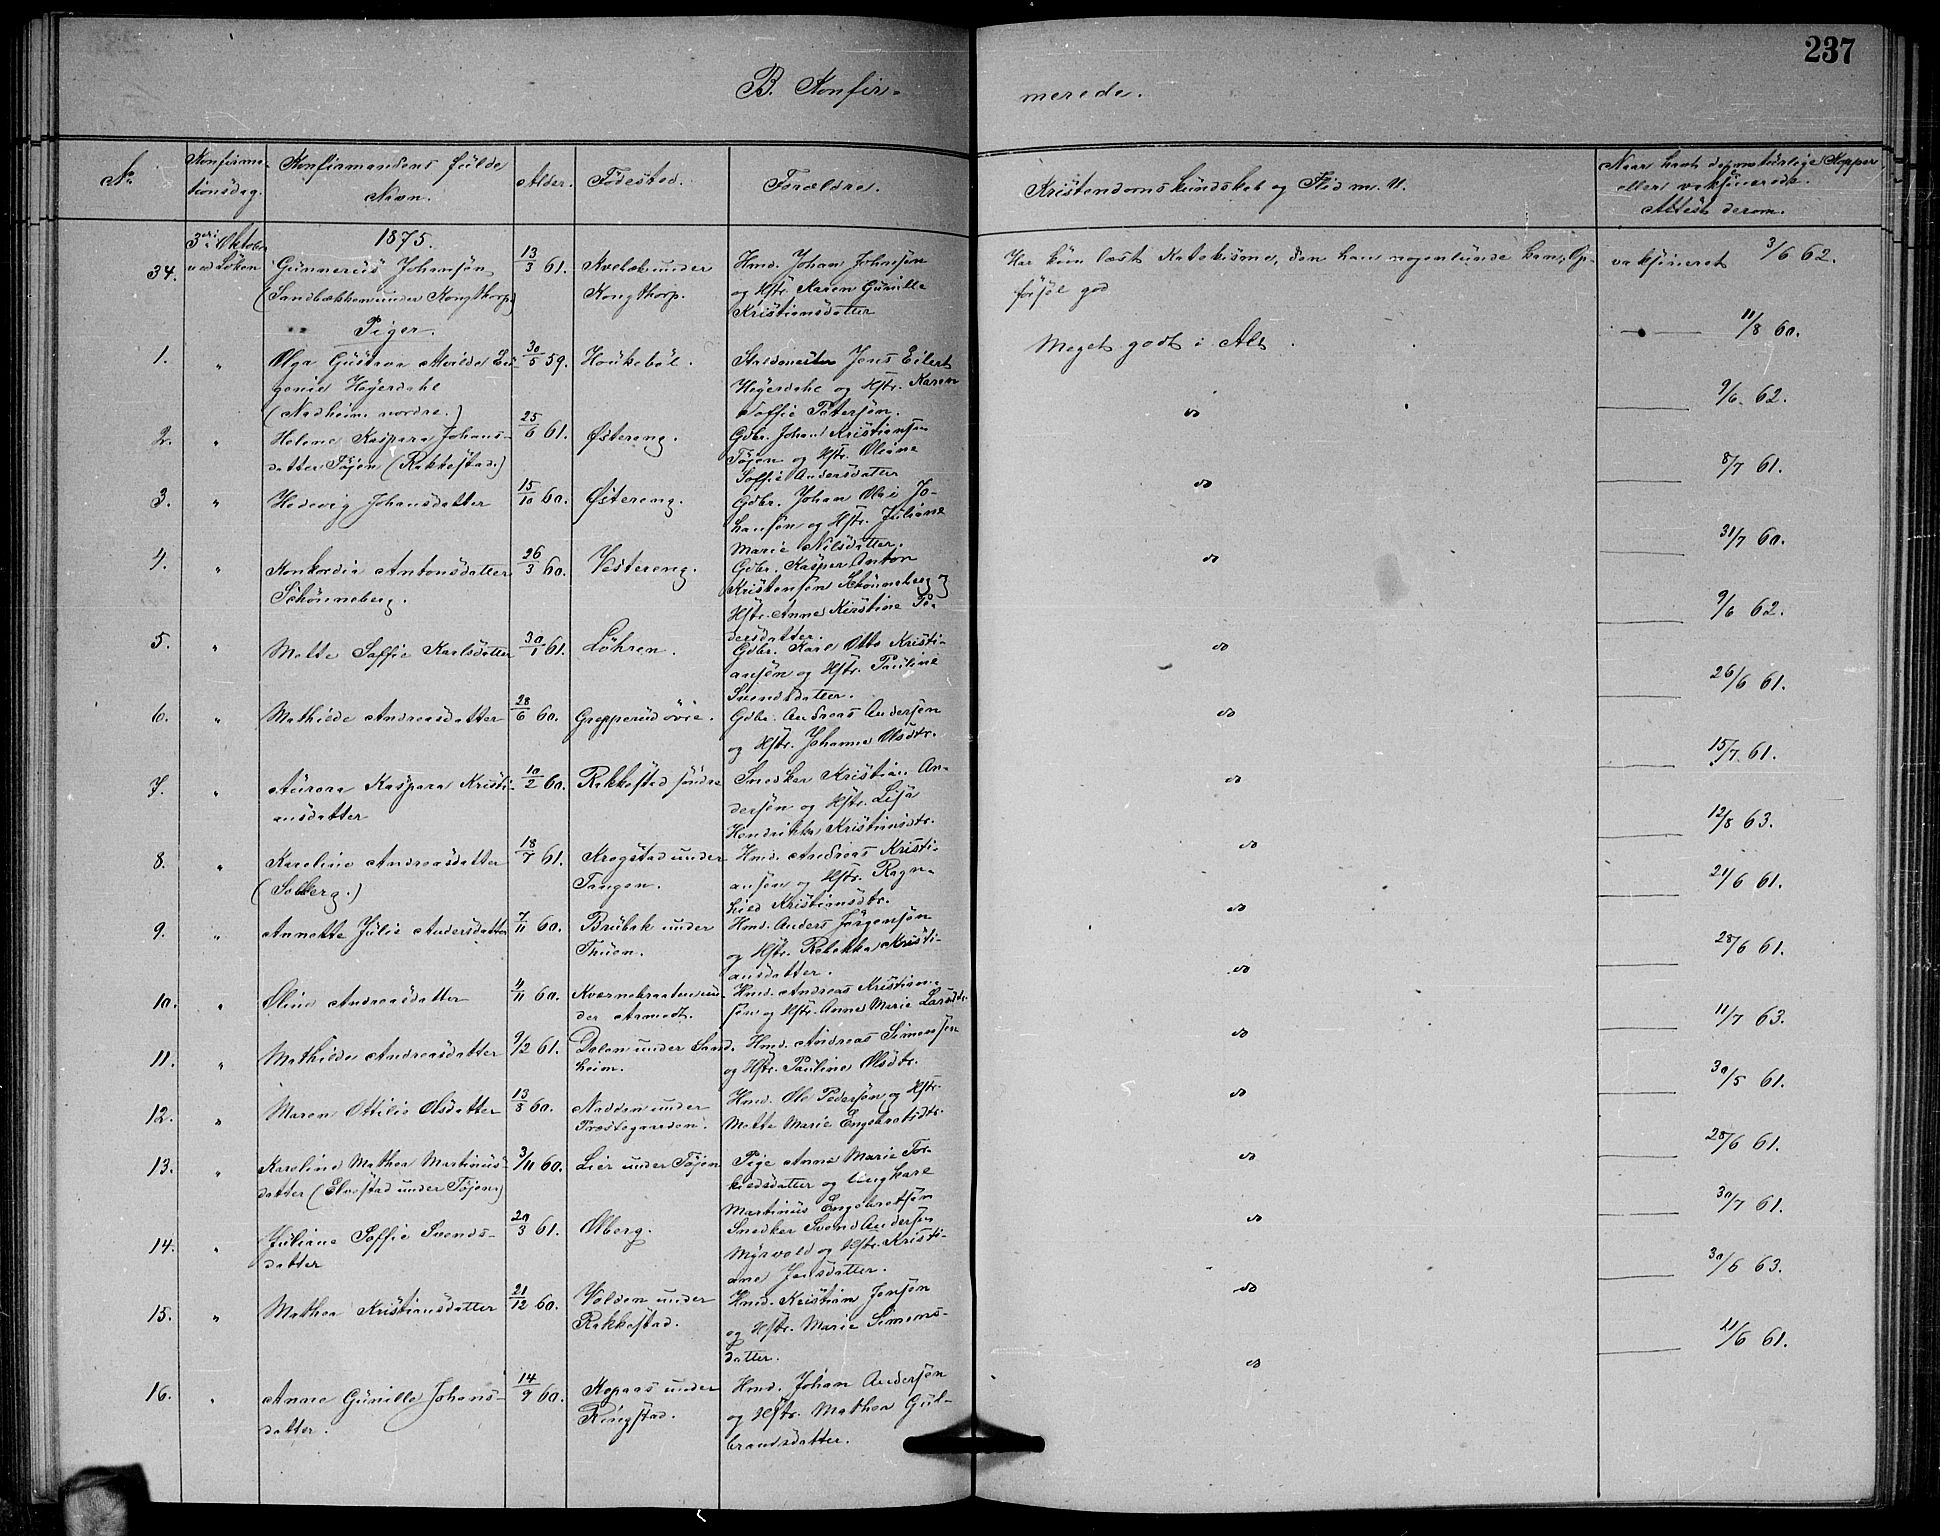 237
B. Konfir-
merede.
No.
Konfirma-
tionsdag.
Konfirmandens fulde
Navn.
Alder.
Fødested.
Forældre.
Kristendomskundskab og Flid m. V.
Naar havt de naturlige Kopper
eller vaksinerede.
Attest derom.
3die Oktober
ved Løken
1875.
34.
Gunnerius Johansøn
(Sandbækken under Kongthorp)
13/3 61.
Kvebæk under
Kongthorp.
Hmd. Johan Johnsøn
og Hstr. Karen Gunille
Kristiansdatter
Har kun læst Katekisme, den han nogenlunde kan, Op-
førsel god
vaksineret 3/6 62.
Piger.
1.
"
Olga Gustava Alvilde Eu-
genie Heyerdahl
(Nadheim nordre.)
30/5 59.
Houkebøl.
Jens Eilert
Heyerdahl og Hstr. Karen
Soffie Petersøn.
Meget godt i Alt.
" 11/8 60.
2.
"
Helene Kaspara Johans-
datter Tøjen (Rakkestad.)
25/6 61.
Østereng.
Gdbr. Johan Kristiansøn
Tøjen og Hstr. Oliane
Soffie Andersdatter
do
9/6 62.
3.
"
Hedevig Johansdatter
15/10 60.
Østereng.
Gdbr. Johan Olai Jo-
hansøn og Hstr. Juliane
Marie Nilsdatter.
do
8/7 61.
4.
"
Konkordia Antonsdatter
Schønneberg.
26/3 60.
Vestereng.
Gdbr. Kasper Anton
Kristensøn Schønneberg og
Hstr. Anne Kirstine Pe-
dersdatter.
do
31/7 60.
5.
"
Mette Soffie Karlsdatter
30/1 61.
Løhren.
Gdbr. Karl Otto Kristi-
ansøn og Hstr. Pauline
Svendsdatter.
do
9/6 62.
6.
"
Mathilde Andreasdatter
28/6 60.
Grepperud øvre.
Gdbr. Andreas Andersøn
og Hstr. Johanne Olsdtr.
do
26/6 61.
7.
"
Aurora Kaspara Kristi-
ansdatter
10/2 60.
Rakkestad søndre
Snedker Kristian An-
dersøn og Hstr. Lisa
Hendrikke Kristiansdtr.
do
15/7 61.
8.
"
Karoline Andreasdatter
(Solberg.)
18/7 61.
Krogstad under
Tangen.
Hmd. Andreas Kristi-
ansøn og Hstr. Ragn-
hild Kristiansdtr.
do
12/8 63.
9.
"
Annette Julie Andersdatter
7/11 60.
Brubak under
Thuen.
Hmd. Anders Jørgensøn
og Hstr. Rebekka Kristi-
ansdatter.
do
21/6 61.
10.
"
Oline Andreasdatter
4/11 60.
Kværnebraaten un-
der Aamodt.
Hmd. Andreas Kristian-
søn og Hstr. Anne Marie Larsdtr.
do
28/6 61.
11.
"
Mathilde Andreasdatter
9/2 61.
Dalen under Sand-
heim.
Hmd. Andreas Simensøn
og Hstr. Pauline Olsdtr.
do
11/7 63.
12.
"
Maren Ottilie Olsdatter
13/8 60.
Nadden under
Præstegaarden.
Hmd. Ole Pedersøn og Hstr.
Mette Marie Engebretsdtr.
do
30/5 61.
13.
"
Karoline Mathea Martinus-
datter (Elvestad under Tøjen)
3/11 60.
Lier under Tøjen
Pige Anne Marie Tor-
kildsdatter og Ungkarl
Martinus Engebretsøn
do
28/6 61.
14.
"
Juliane Soffie Svends-
datter
20/3 61.
Olberg.
Snedker Svend Andersøn
Myrvold og Hstr. Kristi-
ane Jensdatter.
do
30/7 61.
15.
"
Mathea Kristiansdatter
21/12 60.
Volden under
Rakkestad.
Hmd. Kristian Jensøn
og Hstr. Marie Simens-
datter.
do
30/6 63.
16.
"
Anne Gunille Johans-
datter.
14/9 60.
Kopaas under
Ringstad.
Hmd. Johan Andersøn
og Hstr. Mathea Gul-
brandsdatter.
do
21/6 61.